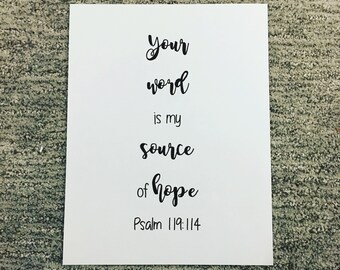 Your
word
is my
source
of hope
Psalm 119:114